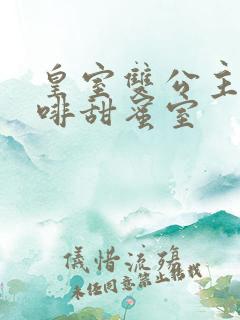 皇室雙公主
啡甜蜜室
儀惜流殤
未经同意禁止转载